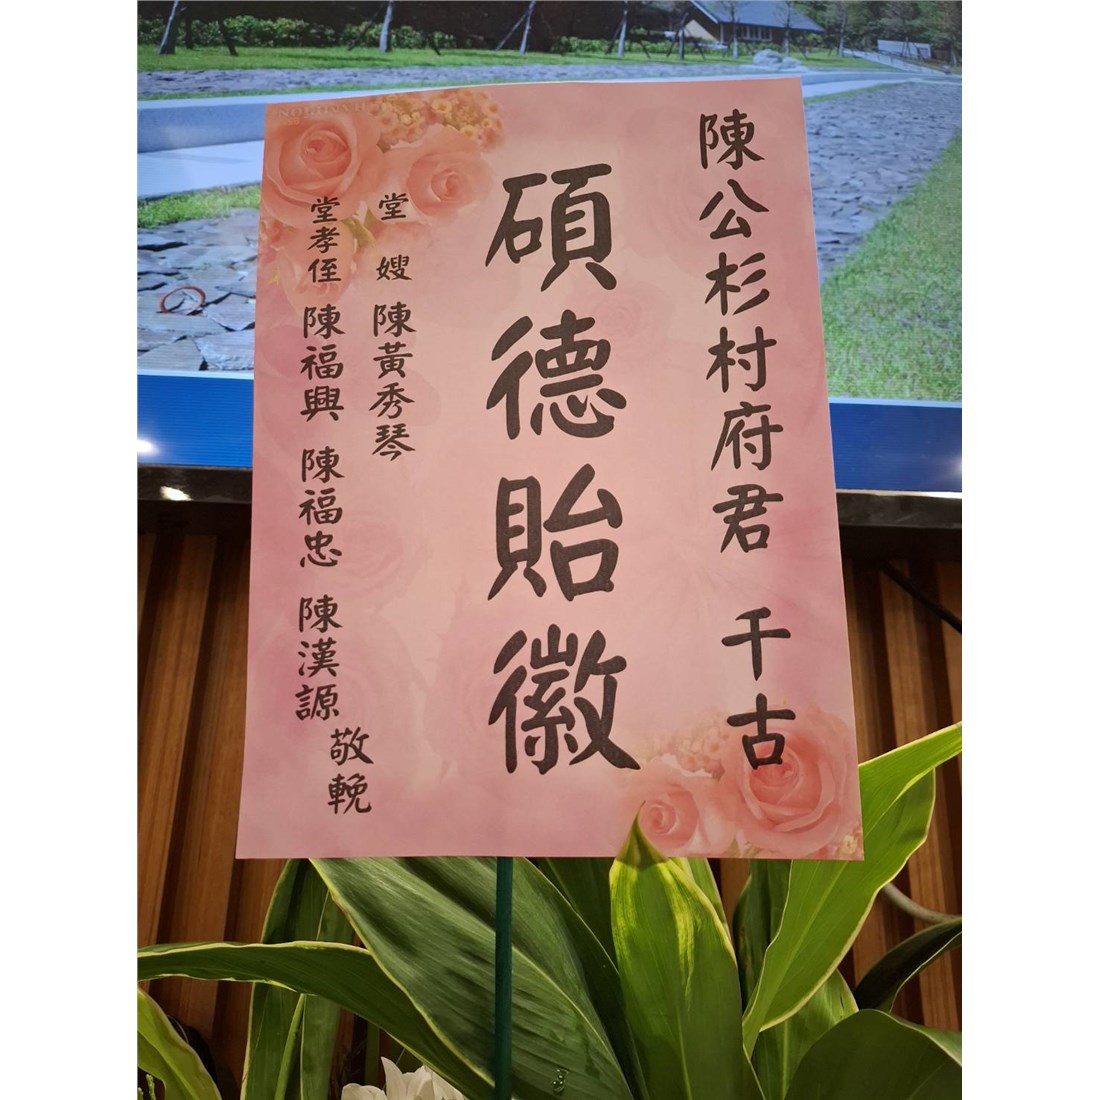 陳公杉村府君 千古
碩德貽徽
堂嫂 陳黃秀琴
堂孝侄 陳福興 陳福忠 陳漢謜
敬輓